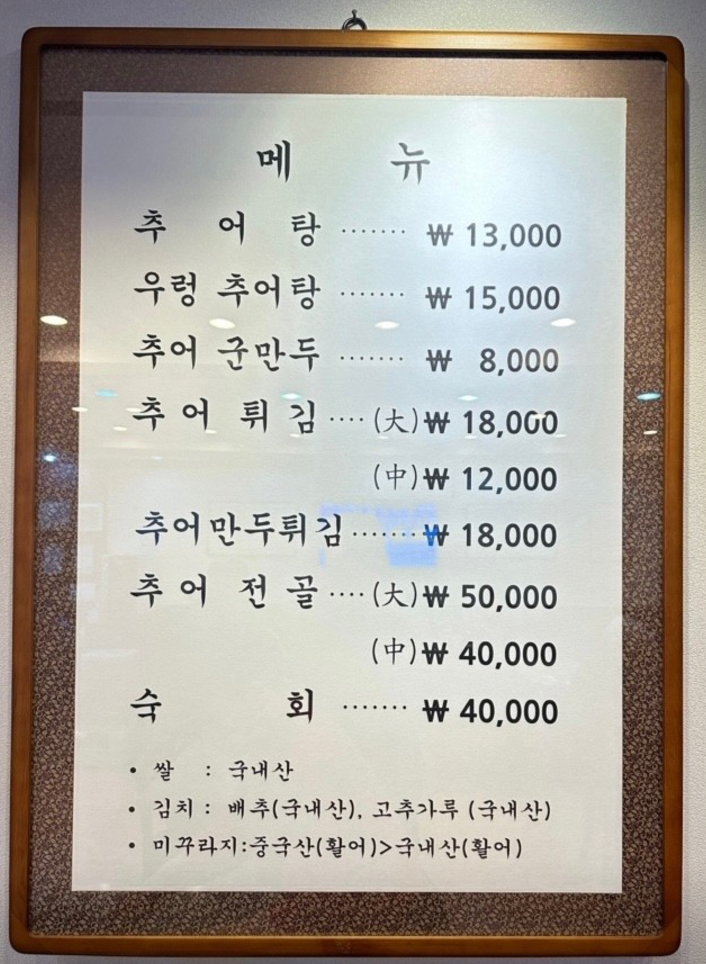 메 뉴
추 어 탕 ······· ₩ 13,000
우렁 추어탕 ······· ₩ 15,000
추어 군만두 ······· ₩ 8,000
추 어 튀 김 ···· (大) ₩ 18,000
(中) ₩ 12,000
추어만두튀김 ······· ₩ 18,000
추 어 전 골 ···· (大) ₩ 50,000
(中) ₩ 40,000
숙 회 ······· ₩ 40,000
• 쌀 : 국내산
• 김치 : 배추(국내산), 고추가루 (국내산)
• 미꾸라지:중국산(활어)>국내산(활어)